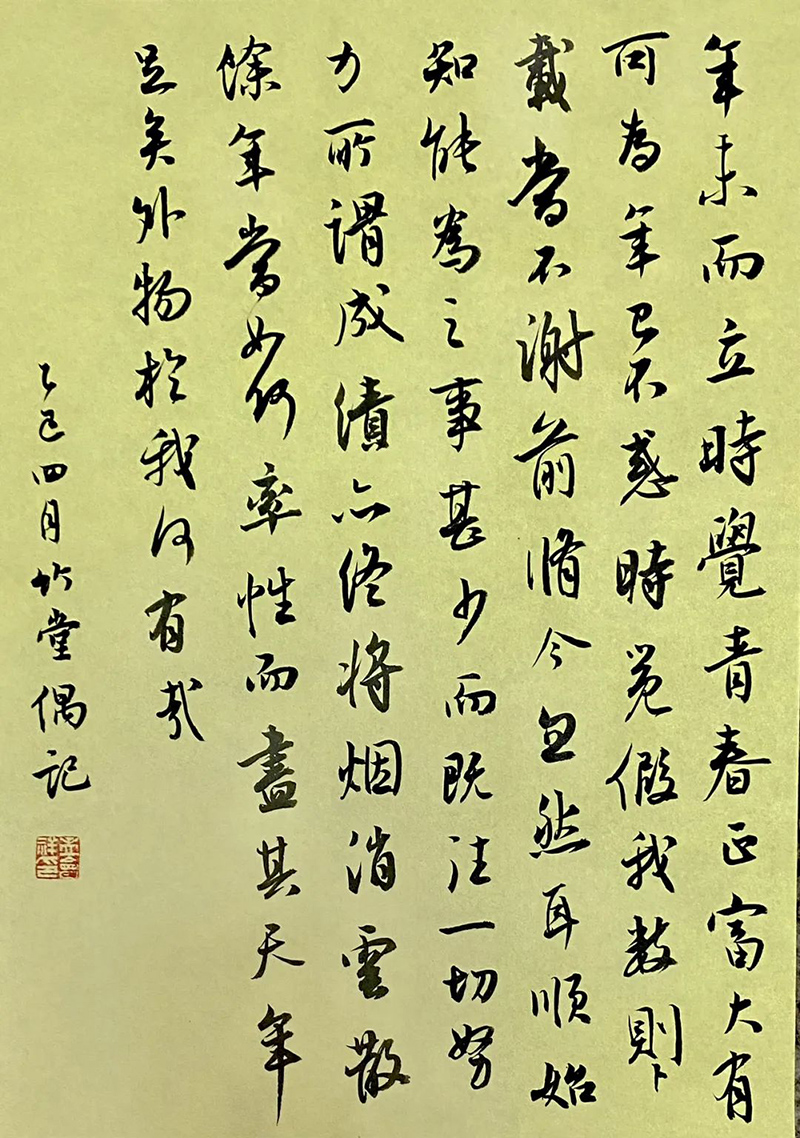 年未而立時覺青春正富大有
可為年已不惑時覺假我數則
載當不謝前脩今忽然耳順始
知能為之事甚少而既往一切努
力所謂成績亦終將烟消雲散
餘年當如何率性而盡其天年
足矣外物於我何有哉
乙巳四月竹堂偶記